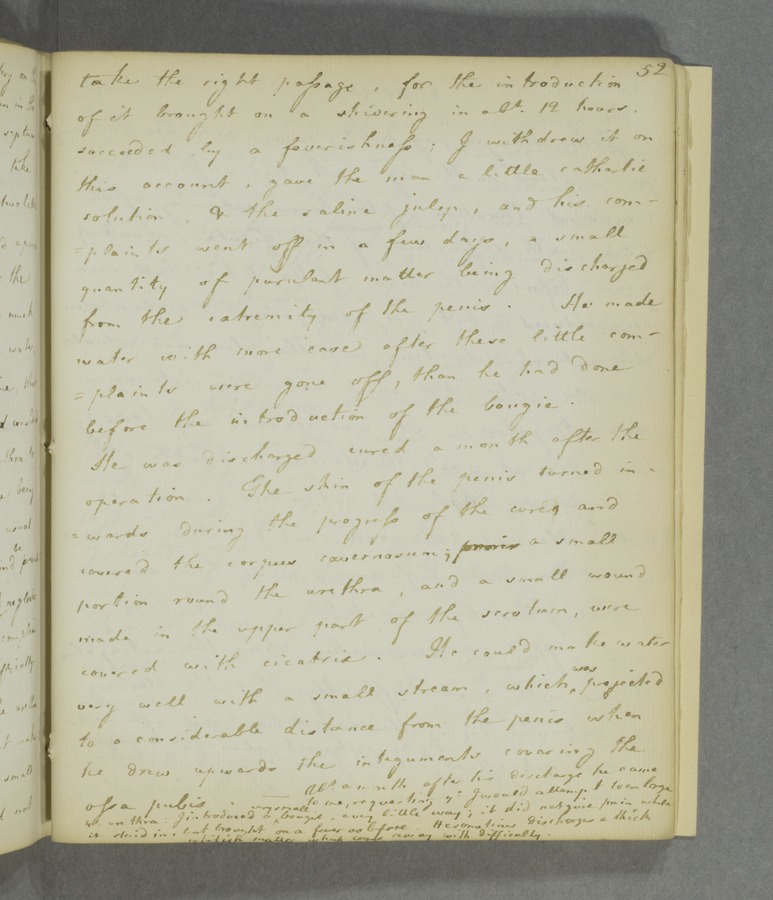 52
take the right passage, for the introduction
of it brought on a shivering in abt. 12 hours.
succeeded by a feverishness; I withdrew it on
this account, gave the man a little cathartic
solution, & the saline julep, and his com-
=plaints went off in a few days, a small
quantity of purulent matter being discharged
from the extremity of the penis. He made
water with more ease after these little com-
=plaints were gone off, than he had done
before the introduction of the bougie.
He was discharged cured a month after the
operation. The skin of the penis turned in-
=wards during the progress of the cure, and
covered the corpus cavernosum; a small
portion round the urethra, and a small wound
made in the upper part of the scrotum, were
covered with cicatrix. He could make water
very well with a small stream, which was projected
to a considerable distance from the penis when
he drew upwards the integuments covering the
ossa pubis. Abt. a month after his discharge he came
to me, requesting yt. I would attempt to enlarge
ye urethra: I introduced a very small bougie, a very little way; it did not give pain while
it staid in; but brought on a fever as before. He sometimes discharges a thick
matter which comes away with difficulty.